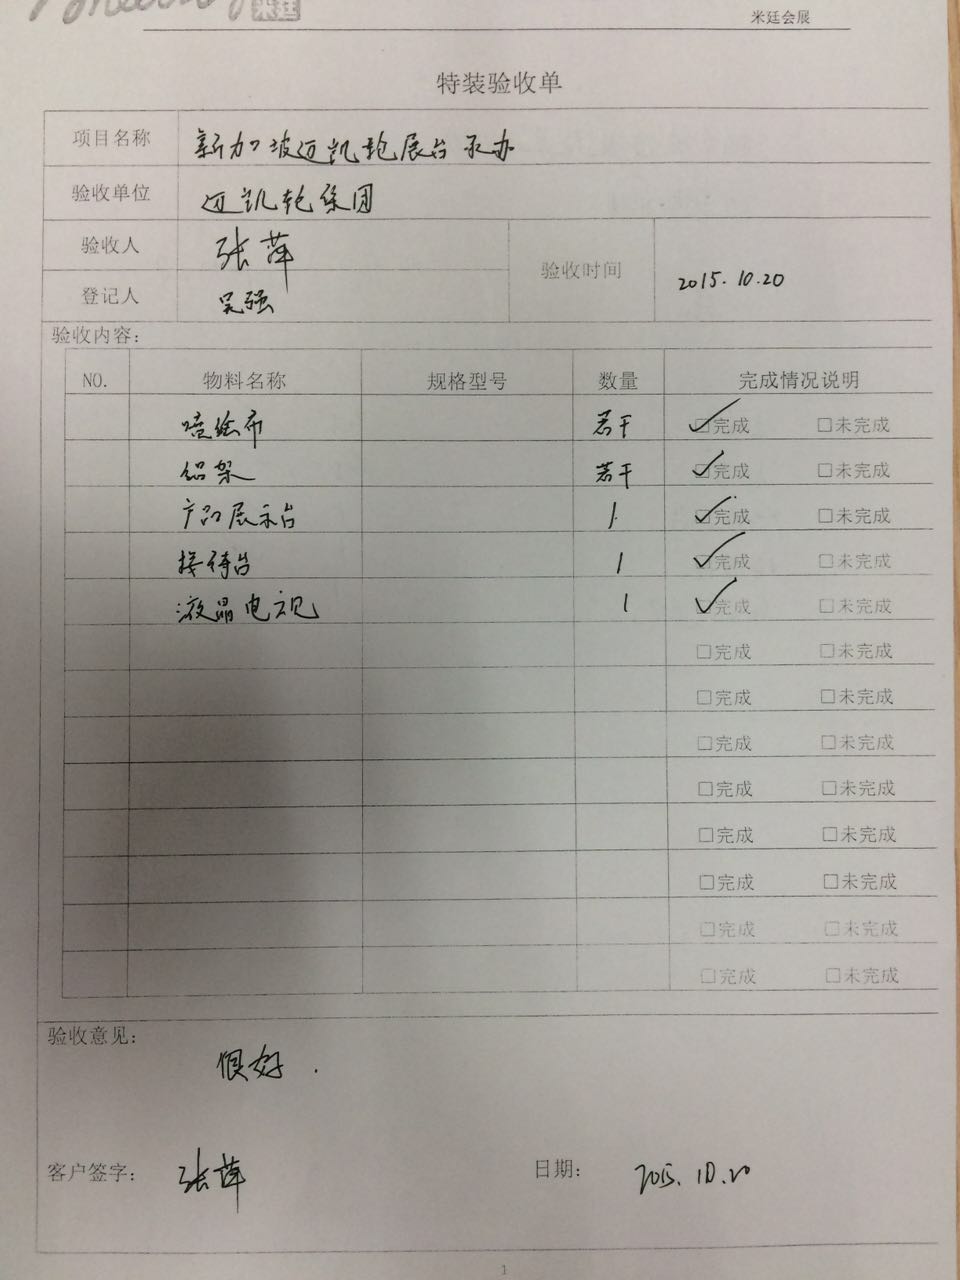 米廷
米廷会展
特装验收单
项目名称 新加坡迈凯轮展台承办
验收单位 迈凯轮集团
验收人 张萍
验收时间 2015.10.20
登记人 吴强
验收内容:
NO. 物料名称 规格型号 数量 完成情况说明
喷绘布 若干 ☑完成 □未完成
铝架 若干 ☑完成 □未完成
产品展示台 1 ☑完成 □未完成
接待台 1 ☑完成 □未完成
液晶电视 1 ☑完成 □未完成
□完成 □未完成
□完成 □未完成
□完成 □未完成
□完成 □未完成
□完成 □未完成
□完成 □未完成
□完成 □未完成
□完成 □未完成
验收意见:
很好.
客户签字: 张萍 日期: 2015.10.20
1